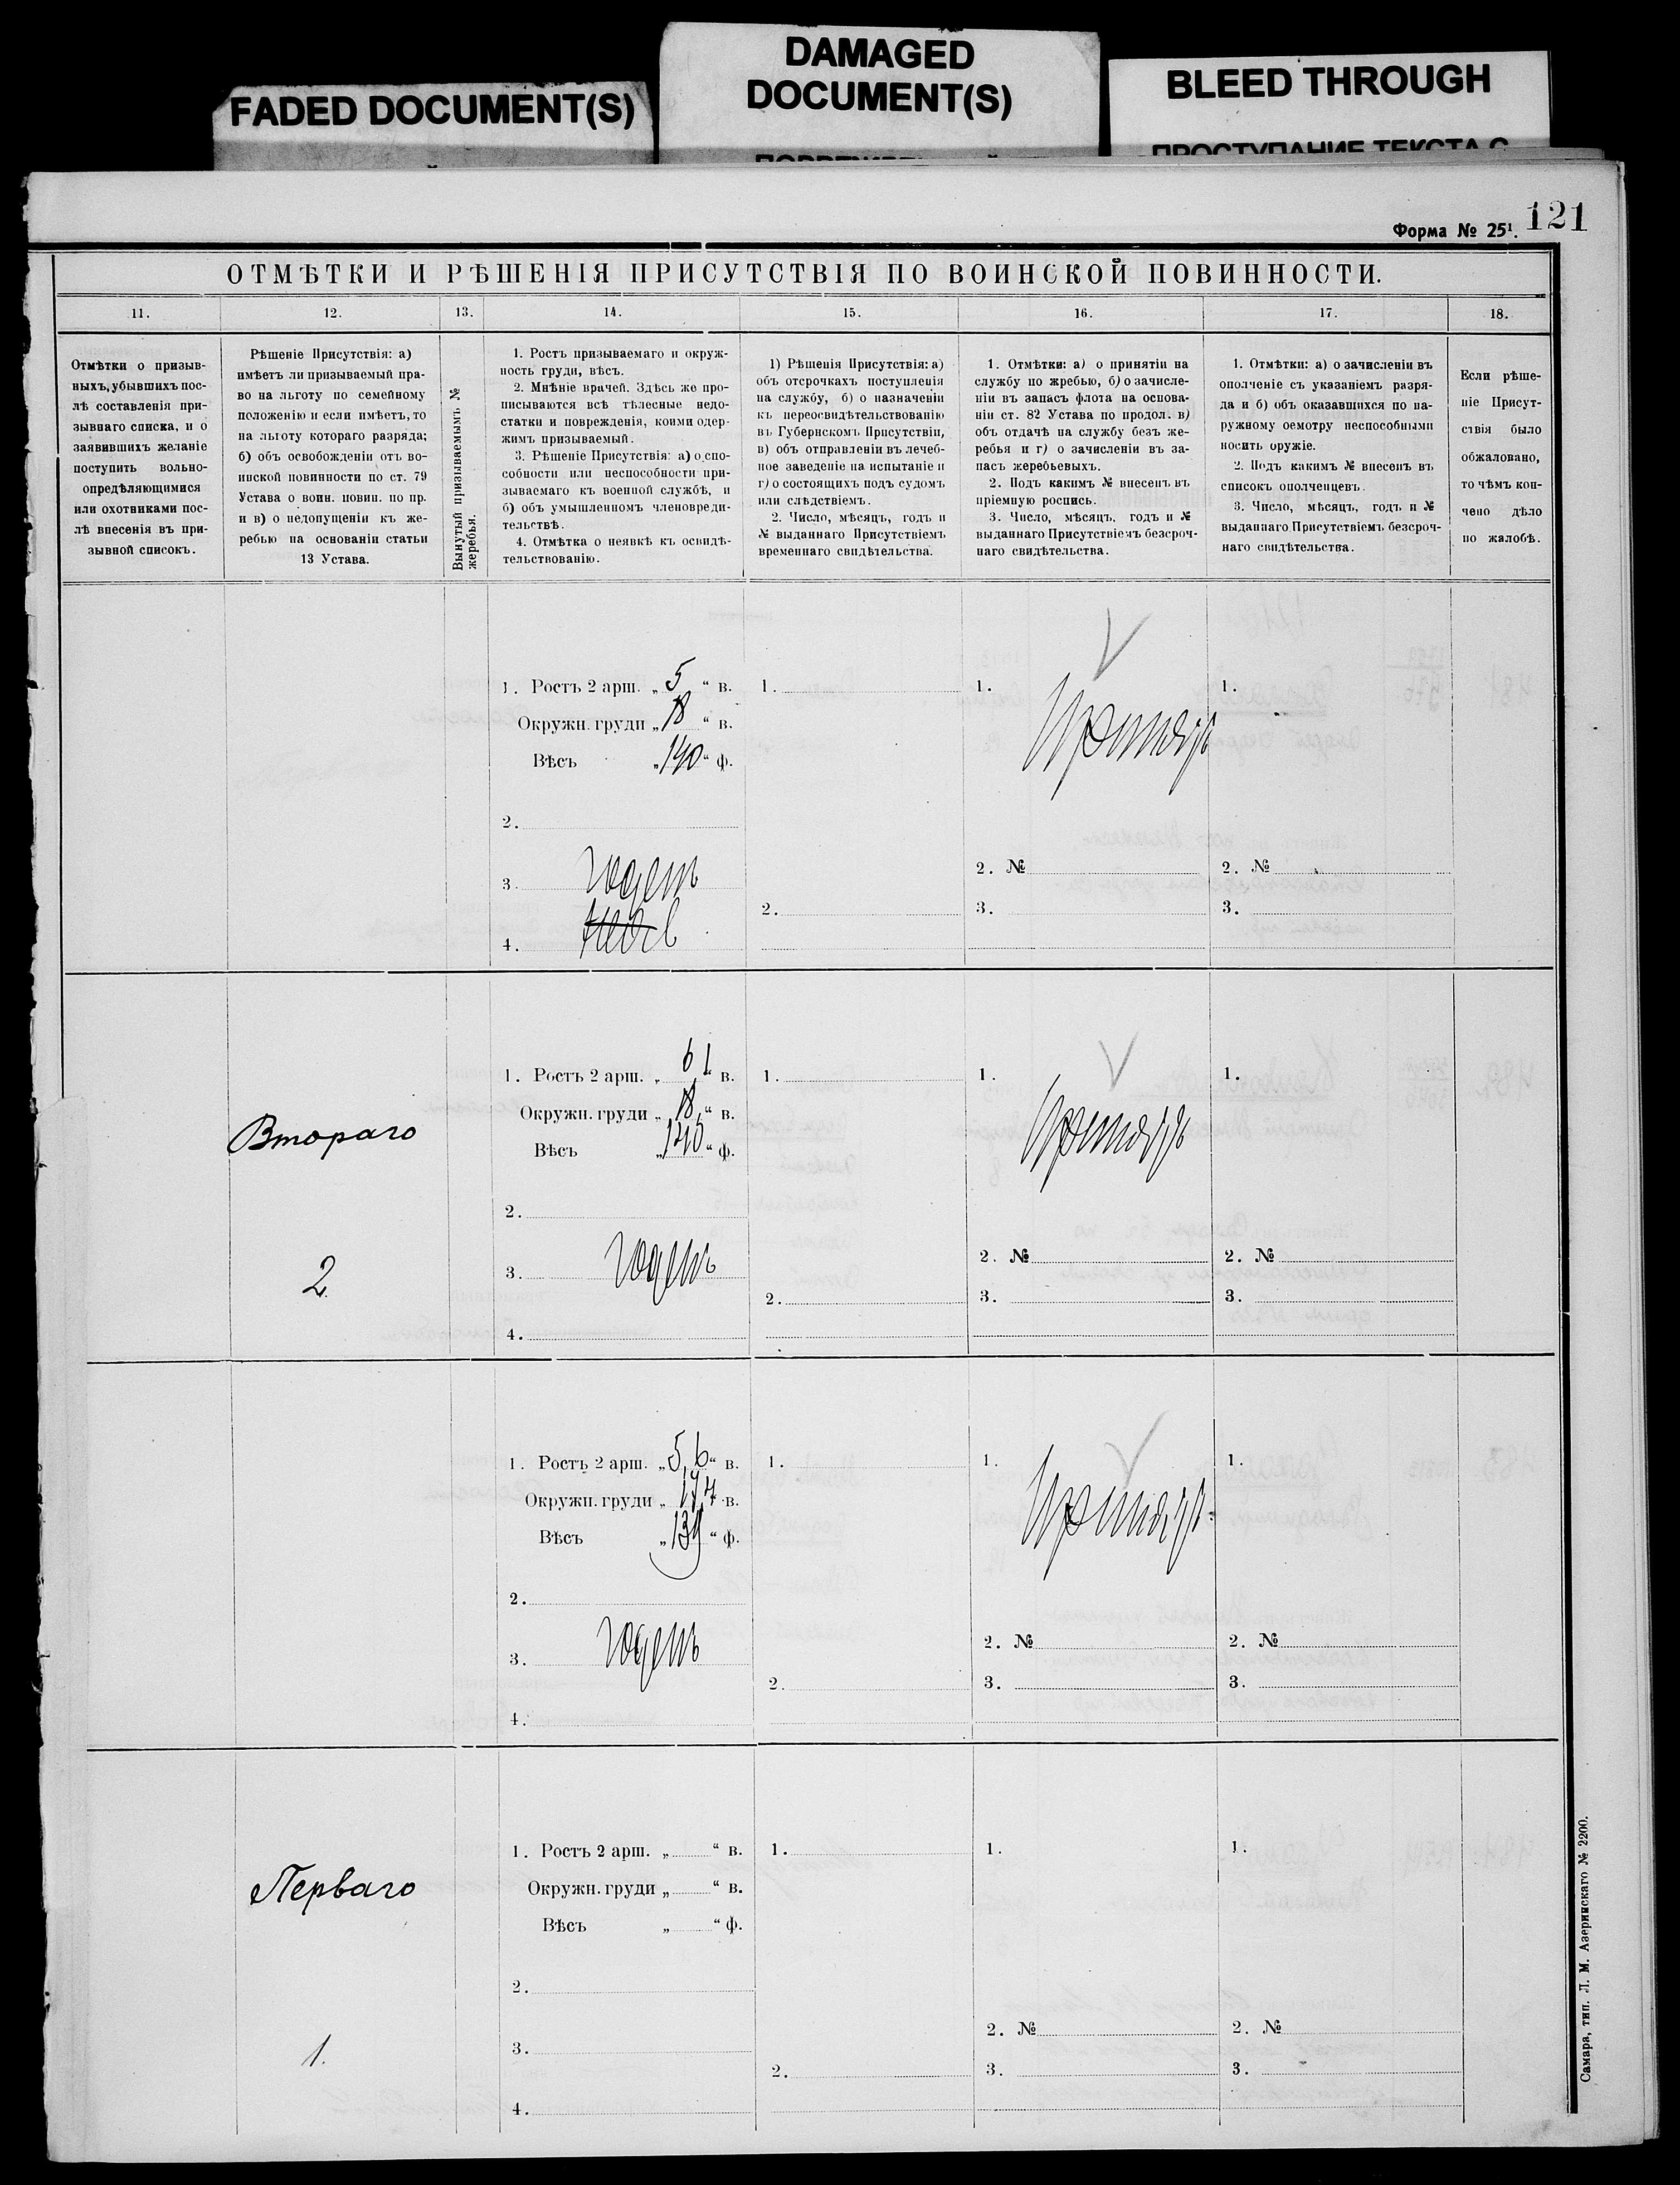 FADED DOCUMENT(S)
DAMAGED
DOCUMENT(S)
BLEED THROUGH
ПРОСТУПАНИЕ ТЕКСТА С
121
Форма № 25¹.
ОТМѢТКИ И РѢШЕНІЯ ПРИСУТСТВІЯ ПО ВОИНСКОЙ ПОВИННОСТИ.
11. 12. 13. 14. 15. 16. 17. 18.
Отмѣтки о призыв-
ныхъ, убывшихъ пос-
лѣ составленія при-
зывнаго списка, и о
заявившихъ желаніе
поступить вольно-
опредѣляющимися
или охотниками пос-
лѣ внесенія въ при-
зывной списокъ.
Рѣшеніе Присутствія: а)
имѣетъ ли призываемый пра-
во на льготу по семейному
положенію и если имѣетъ, то
на льготу котораго разряда;
б) объ освобожденіи отъ во-
инской повинности по ст. 79
Устава о воин. повин. по пр.
и в) о недопущеніи къ же-
ребью на основаніи статьи
13 Устава.
Вынутый призываемымъ №
жеребья.
1. Ростъ призываемаго и окруж-
ность груди, вѣсъ.
2. Мнѣніе врачей. Здѣсь же про-
писываются всѣ тѣлесные недо-
статки и поврежденія, коими одер-
жимъ призываемый.
3. Рѣшеніе Присутствія: а) о спо-
собности или неспособности при-
зываемаго къ военной службѣ, и
б) объ умышленномъ членовреди-
тельствѣ.
4. Отмѣтка о неявкѣ къ освидѣ-
тельствованію.
1) Рѣшенія Присутствія: а)
объ отсрочкахъ поступленія
на службу, б) о назначеніи
къ переосвидѣтельствованію
въ Губернскомъ Присутствіи,
в) объ отправленіи въ лечеб-
ное заведеніе на испытаніе и
г) о состоящихъ подъ судомъ
или слѣдствіемъ.
2. Число, мѣсяцъ, годъ и
№ выданнаго Присутствіемъ
временнаго свидѣтельства.
1. Отмѣтки: а) о принятіи на
службу по жребью, б) о зачисле-
ніи въ запасъ флота на основа-
ніи ст. 82 Устава по продол. в)
объ отдачѣ на службу безъ же-
ребья и г) о зачисленіи въ за-
пасъ жеребьевыхъ.
2. Подъ какимъ № внесенъ въ
пріемную роспись.
3. Число, мѣсяцъ, годъ и №
выданнаго Присутствіемъ безсроч-
наго свидѣтельства.
1. Отмѣтки: а) о зачисленіи въ
ополченіе съ указаніемъ разря-
да и б) объ оказавшихся по на-
ружному осмотру неспособными
носить оружіе.
2. Подъ какимъ № внесенъ въ
списокъ ополченцевъ.
3. Число, мѣсяцъ, годъ и №
выданнаго Присутствіемъ безсроч-
наго свидѣтельства.
Если рѣше-
ніе Присут-
ствія было
обжаловано,
то чѣмъ кон-
чено дѣло
по жалобѣ.
1. Ростъ 2 арш. „ 5 “ в. 1. 1. 1.
Окружн. груди „ 18 “ в.
Вѣсъ „ 140 “ ф.
2.
2. № 2. №
3. Годенъ
2. 3. 3.
4.
1. Ростъ 2 арш. „ 6 1 “ в. 1. 1. 1.
Окружн. груди „ 18 “ в.
Втораго
Вѣсъ „ “ ф.
2.
2. № 2. №
2 3. Годенъ
2. 3. 3.
4.
1. Ростъ 2 арш. „ 5,6 “ в. 1. 1. 1.
Окружн. груди „ 17,4 в.
Вѣсъ „ 139 “ ф.
2.
2. № 2. №
3. Годенъ
2. 3. 3.
4.
1. Ростъ 2 арш. „ “ в. 1. 1. 1.
Перваго
Окружн. груди „ “ в.
Вѣсъ „ “ ф.
2.
2. № 2. №
1. 3.
2. 3. 3.
4.
Самара, тип. Л. М. Азеринскаго № 2200.